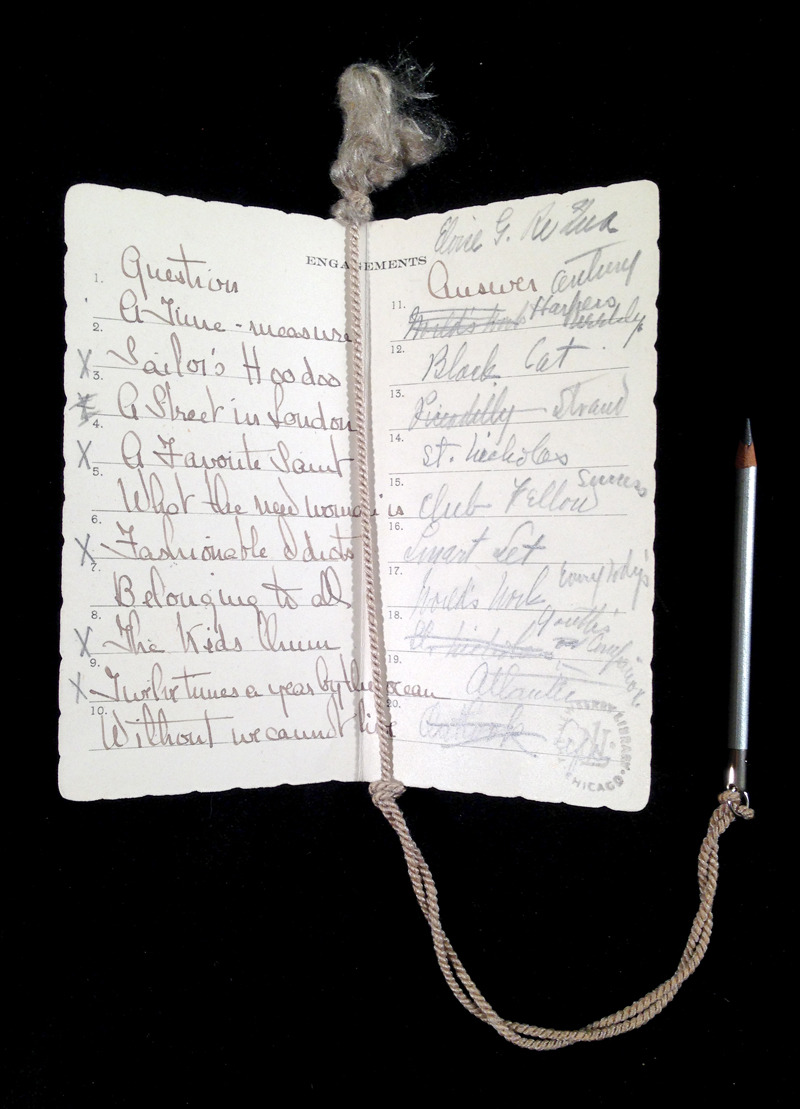 ENGAGEMENTS
1. Question
A Time-measure
2.
Sailor's Hoodoo
3.
A Street in London
4.
A Favorite Saint
5.
What the new woman is
6.
Fashionable Idiots
7.
Belonging to all
8.
The Kids Chum
9.
Twelve times a year by the ocean
10.
Without we cannot live
Eloise G.
Answer Century
11.
World's Work Harpers Weekly
12.
Black Cat
13.
Piccadilly Strand
14.
St. Nicholas
15.
Club Fellow Success
16.
Smart Set
17.
World's Work Everybody's
18.
St. Nicholas Youth's Companion
19.
Atlantic
20.
Outlook
LIBRARY
CHICAGO